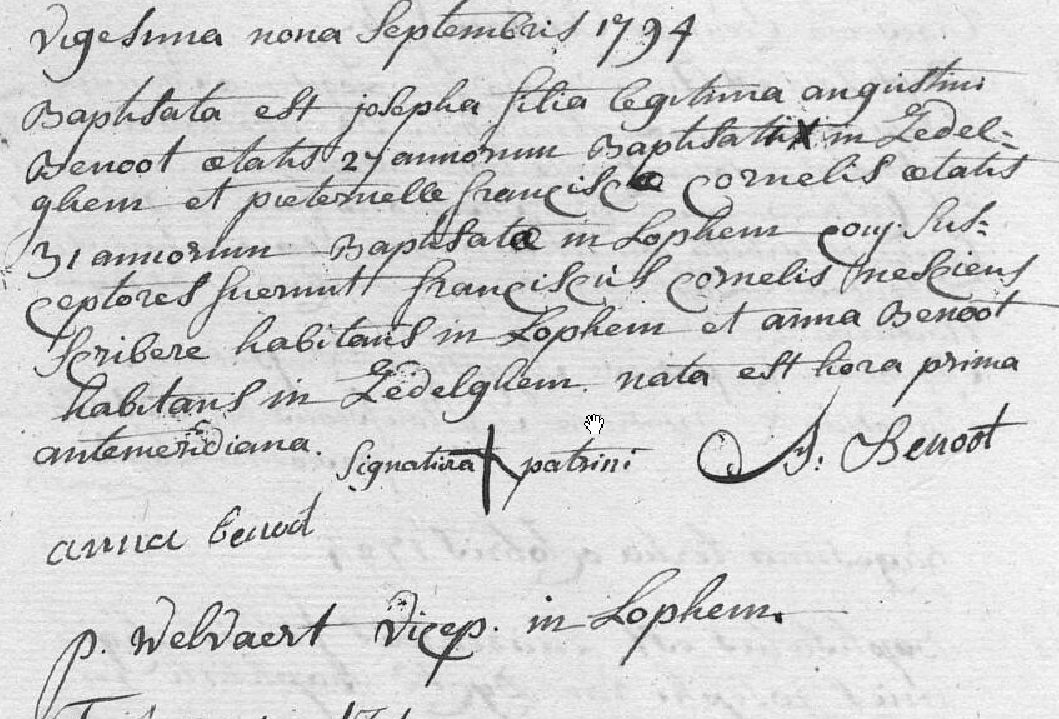 Vigesima nona Septembris 1794
Baptisata est josepha filia legitima augustini
Benoot ætatis 27 annorum Baptisati in Zedel-
ghem et pieternelle franciscæ Cornelis ætatis
31 annorum Baptisatæ in Lophem conj. Sus-
ceptores fuerunt franciscus Cornelis nesciens
scribere habitans in Lophem et anna Benoot
habitans in Zedelghem. nata est hora prima
antemeridiana. Signatura + patrini A: Benoot
anna benoot
p. Welvaert Vicep. in Lophem.